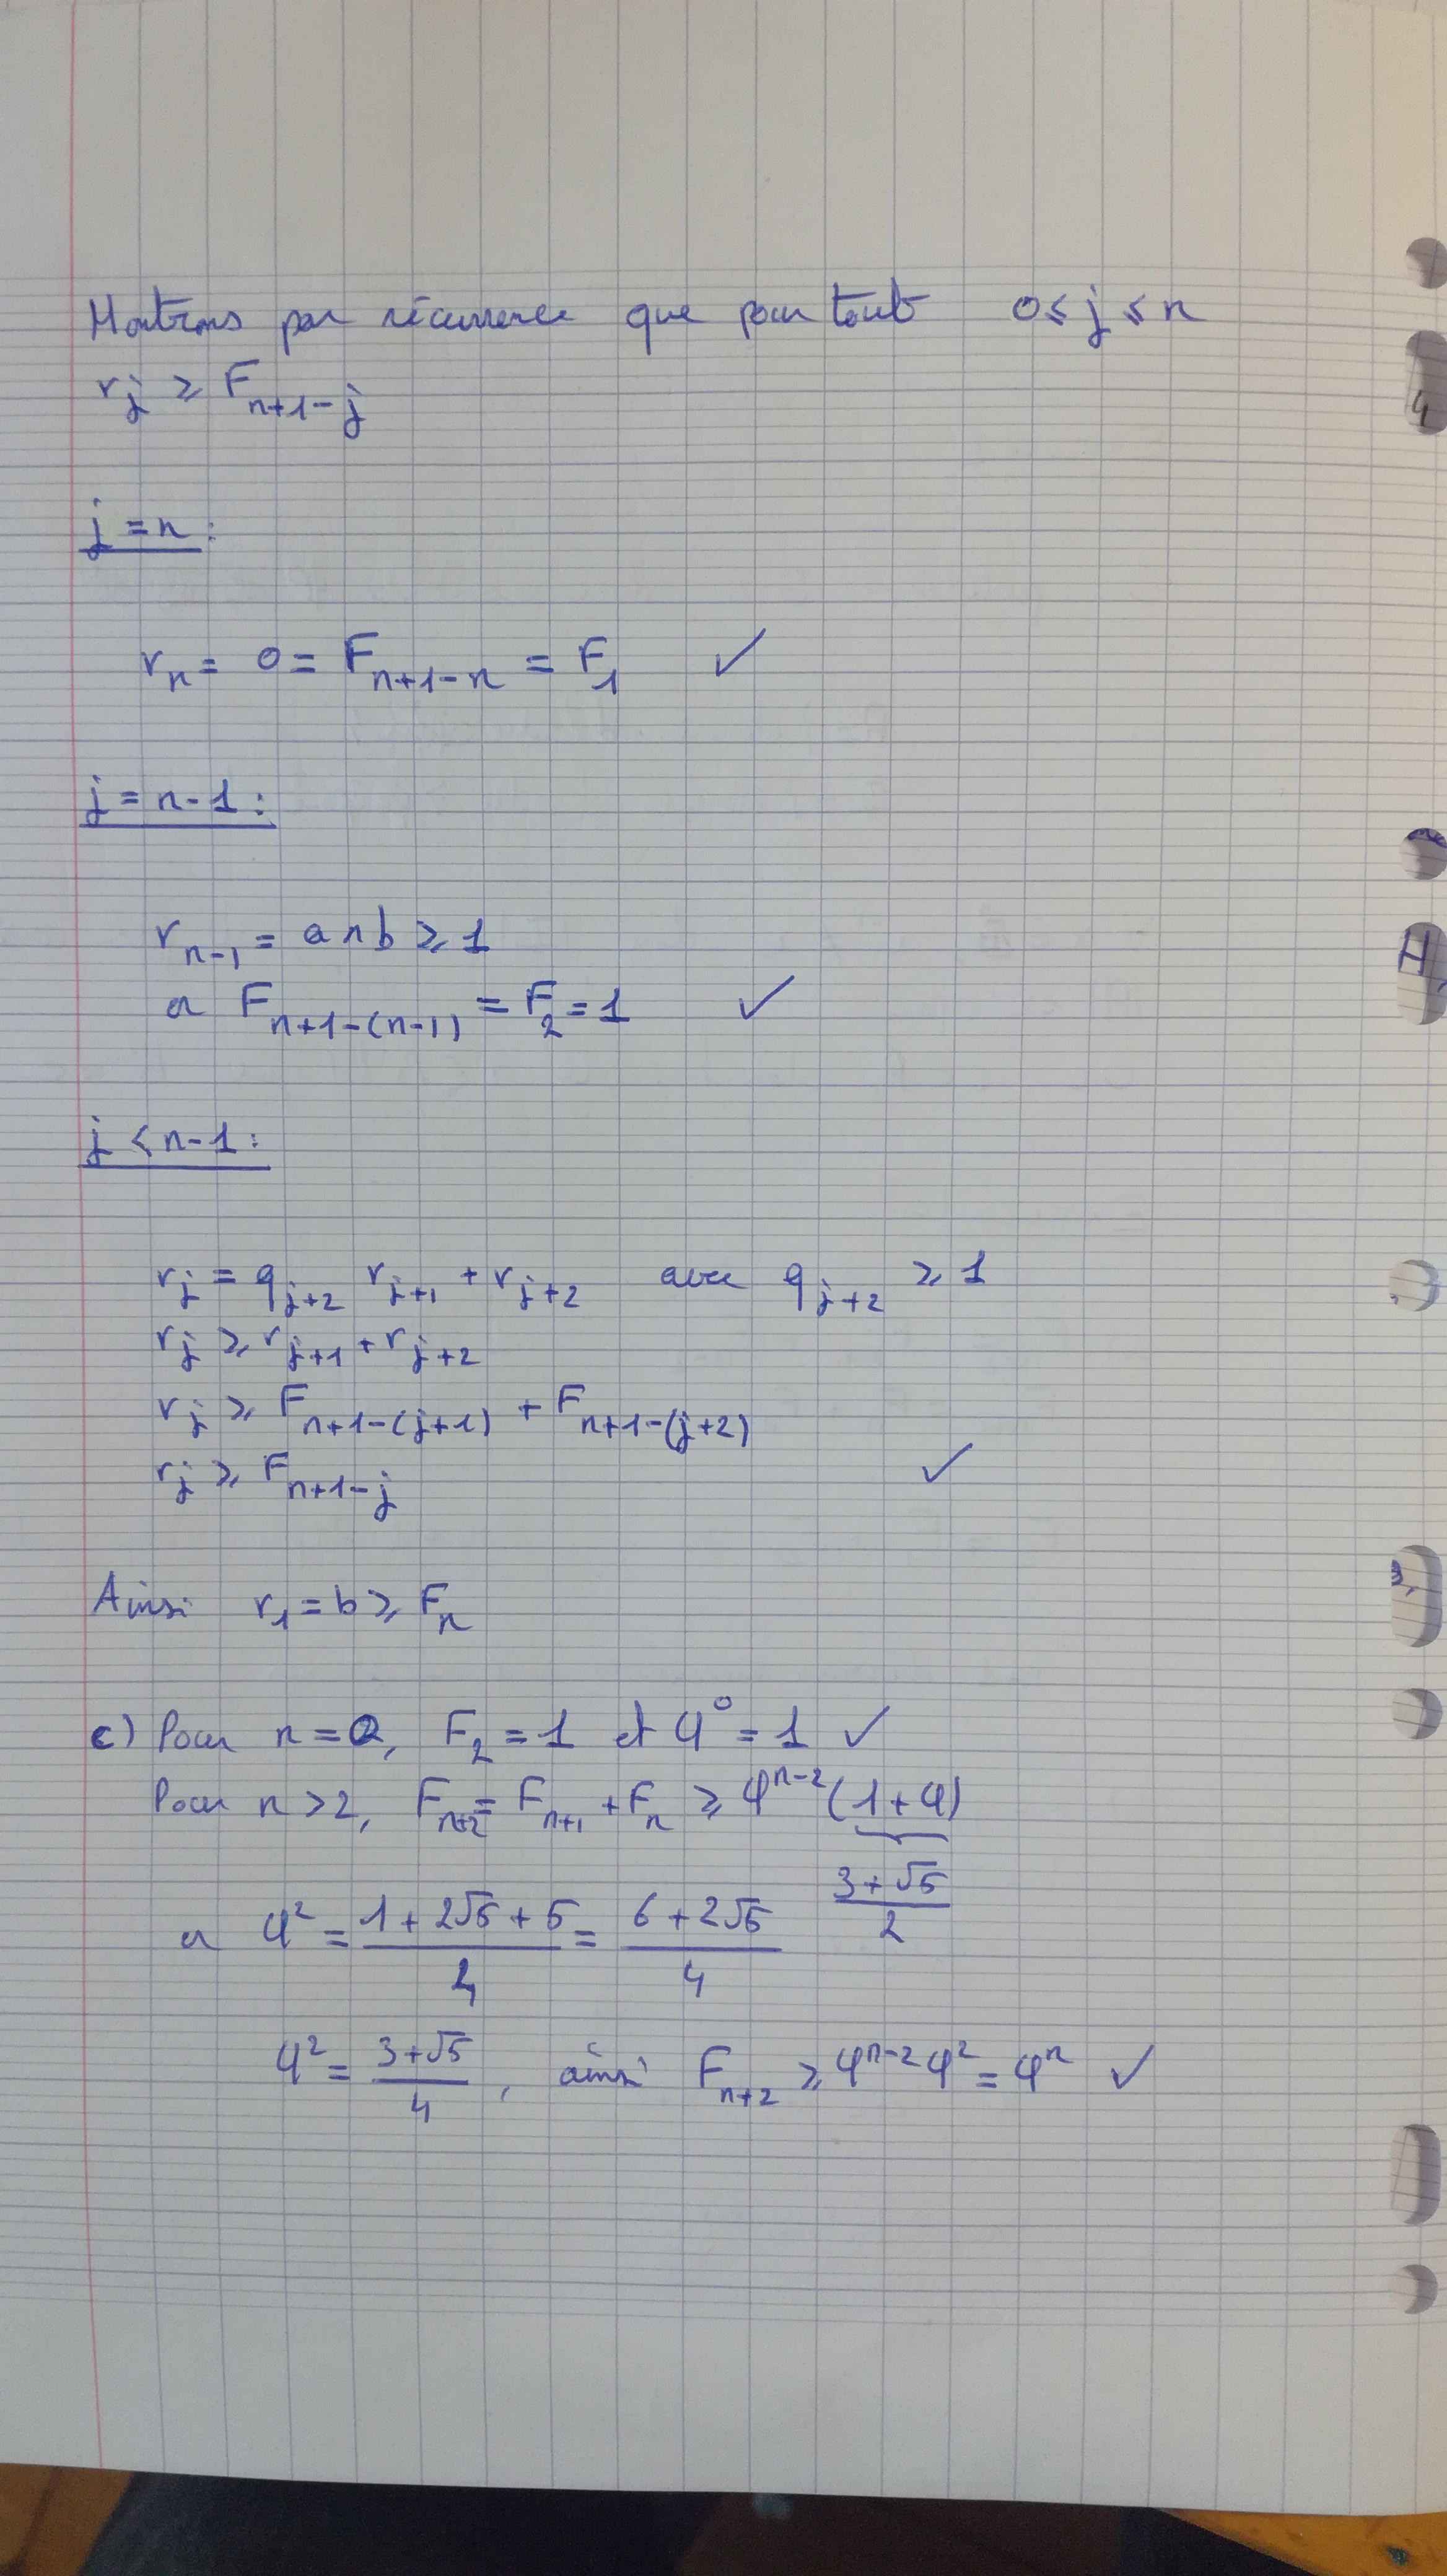 Montrons par récurrence que pour tout 0 ≤ j ≤ n
r_j ≥ F_{n+1-j}
j = n :
r_n = 0 = F_{n+1-n} = F_1 ✓
j = n-1 :
r_{n-1} = a ∧ b ≥ 1
or F_{n+1-(n-1)} = F_2 = 1 ✓
j < n-1 :
r_j = q_{j+2} r_{j+1} + r_{j+2} avec q_{j+2} ≥ 1
r_j ≥ r_{j+1} + r_{j+2}
r_j ≥ F_{n+1-(j+1)} + F_{n+1-(j+2)}
r_j ≥ F_{n+1-j} ✓
Ainsi r_1 = b ≥ F_n
c) Pour n = 2, F_2 = 1 et φ^0 = 1 ✓
Pour n > 2, F_{n+2} = F_{n+1} + F_n ≥ φ^{n-2} (1 + φ)
(3 + √5)/2
or φ^2 = (1 + 2√5 + 5)/4 = (6 + 2√5)/4
φ^2 = (3 + √5)/4, ainsi F_{n+2} ≥ φ^{n-2} φ^2 = φ^n ✓